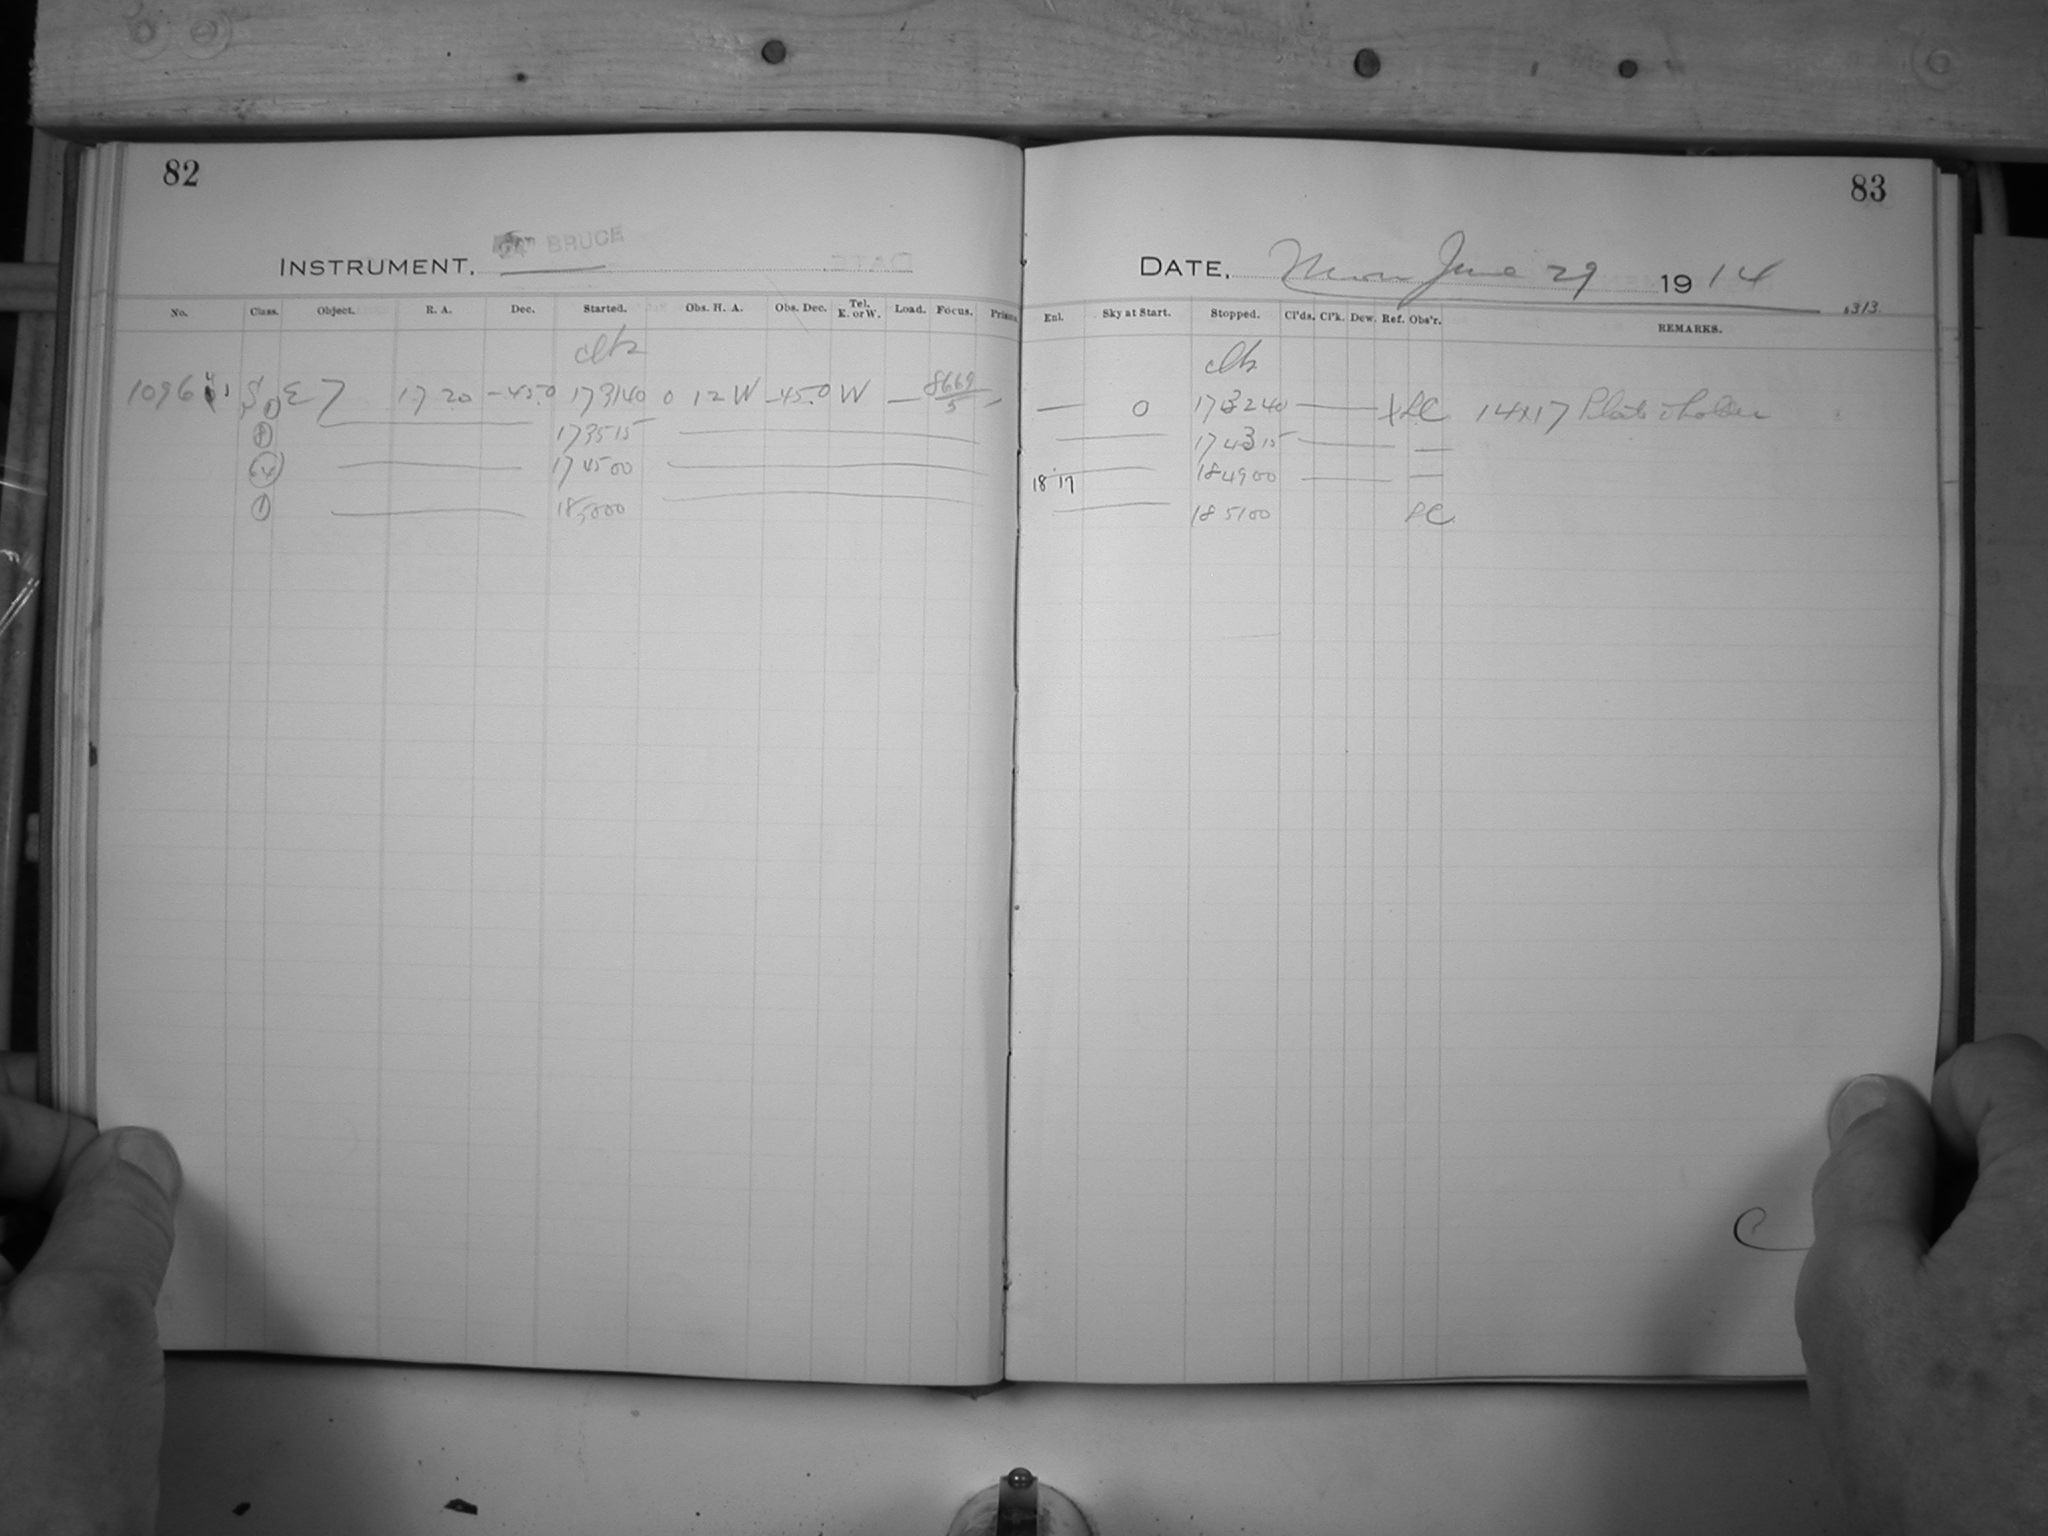 82
INSTRUMENT. BRUCE
No. Class. Object. R. A. Dec. Started. Obs. H. A. Obs. Dec. Tel. E. or W. Load. Focus. Prisms
clk
1096 S 1 17 20 -45.0 173140 0 12 W -45.0 W — 8669/5 —
8 173515
64 174500
1 185000
83
DATE. Mon June 29 1914
Enl. Sky at Start. Stopped. Cl'ds. Cl'k. Dew. Ref. Obs'r. REMARKS.
clk
— 0 173240 — 14x17 Plate holder
174315
18 17 184900
185100